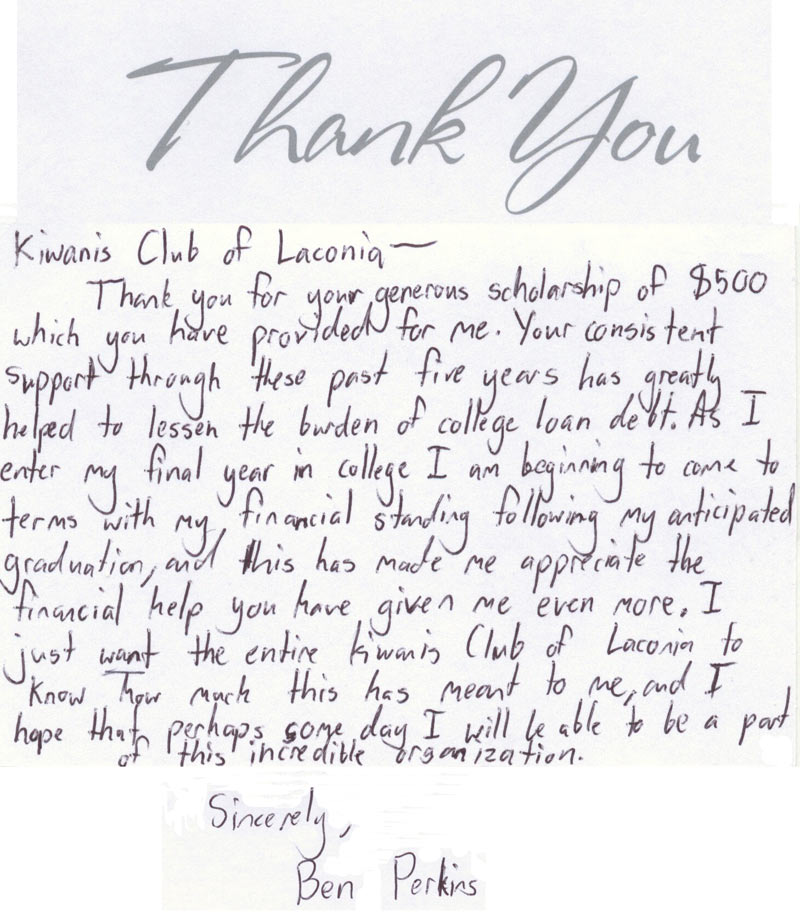 Thank You
Kiwanis Club of Laconia—
Thank you for your generous scholarship of $500
which you have provided for me. Your consistent
support through these past five years has greatly
helped to lessen the burden of college loan debt. As I
enter my final year in college I am beginning to come to
terms with my financial standing following my anticipated
graduation, and this has made me appreciate the
financial help you have given me even more. I
just want the entire Kiwanis Club of Laconia to
know how much this has meant to me, and I
hope that perhaps some day I will be able to be a part
of this incredible organization.
Sincerely,
Ben Perkins